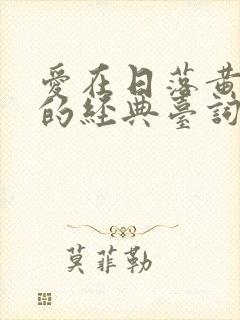 愛在日落黃
的經典臺詞
莫菲勒